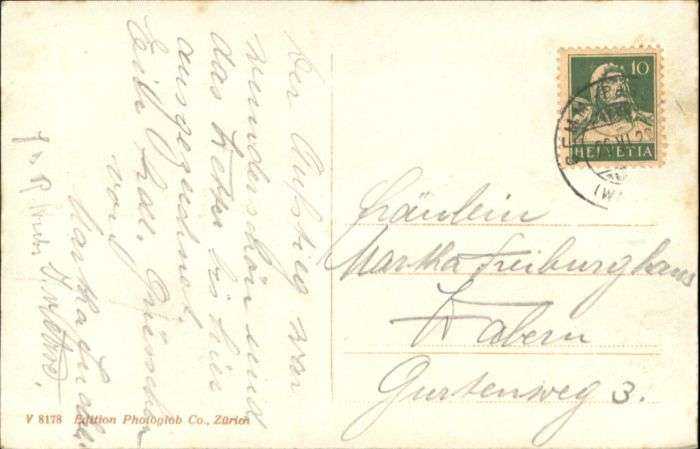 Der Aufstieg war
wunderschön und
das Wetter bis hier
ausgezeichnet.
Grüsschen
von
Martha
10
HELVETIA
Fräulein
Martha Freiburghaus
Wabern
Gurtenweg 3.
V 8178 Edition Photoglob Co., Zürich